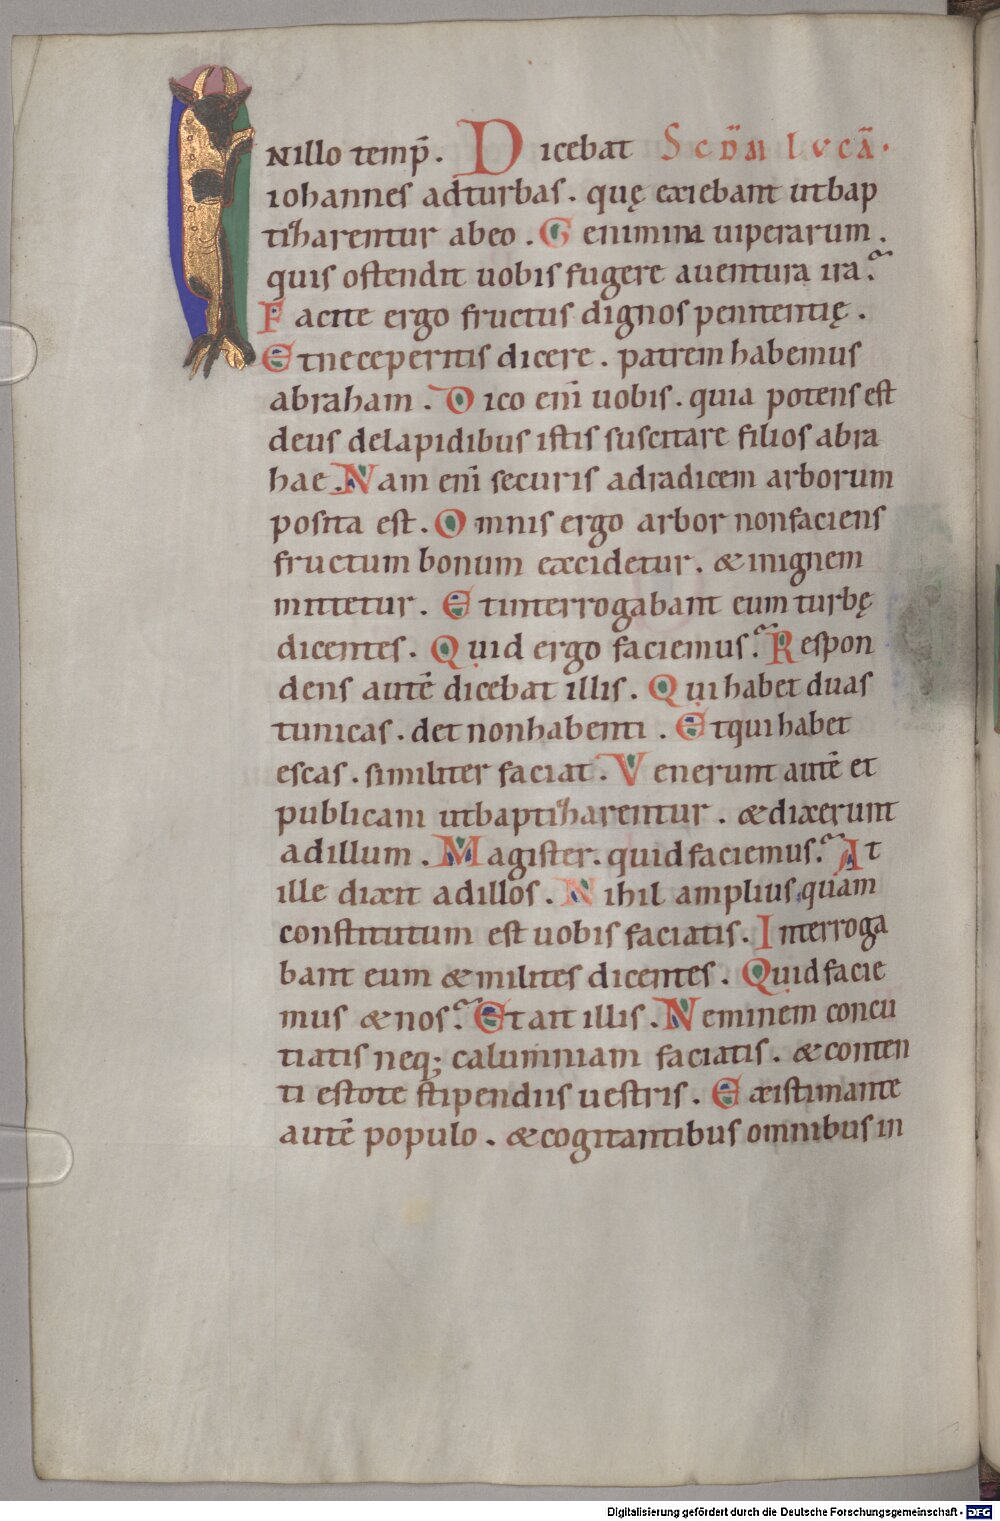 INillo temp̄. Dicebat Scd̄m lvcā.
iohannes adturbas. quę exiebant utbap
tizarentur abeo. Genimina uiperarum.
quis ostendit uobis fugere auentura ira?
Facite ergo fructus dignos penitentię.
Et neceperitis dicere. patrem habemus
abraham. Dico enī uobis. quia potens est
deus delapidibus istis suscitare filios abra
hae. Nam enī securis adradicem arborum
posita est. Omnis ergo arbor nonfaciens
fructum bonum excidetur. & inignem
mittetur. Et interrogabant eum turbę
dicentes. Quid ergo faciemus? Respon
dens autē dicebat illis. Qui habet duas
tunicas. det nonhabenti. Et qui habet
escas. similiter faciat. Venerunt autē et
publicani utbaptizarentur. & dixerunt
adillum. Magister. quid faciemus? At
ille dixit adillos. Nihil amplius quam
constitutum est uobis faciatis. Interroga
bant eum & milites dicentes. Quid facie
mus & nos? Et ait illis. Neminem concu
tiatis neq; calumniam faciatis. & conten
ti estote stipendiis uestris. Existimante
autē populo. & cogitantibus omnibus in
Digitalisierung gefördert durch die Deutsche Forschungsgemeinschaft - DFG